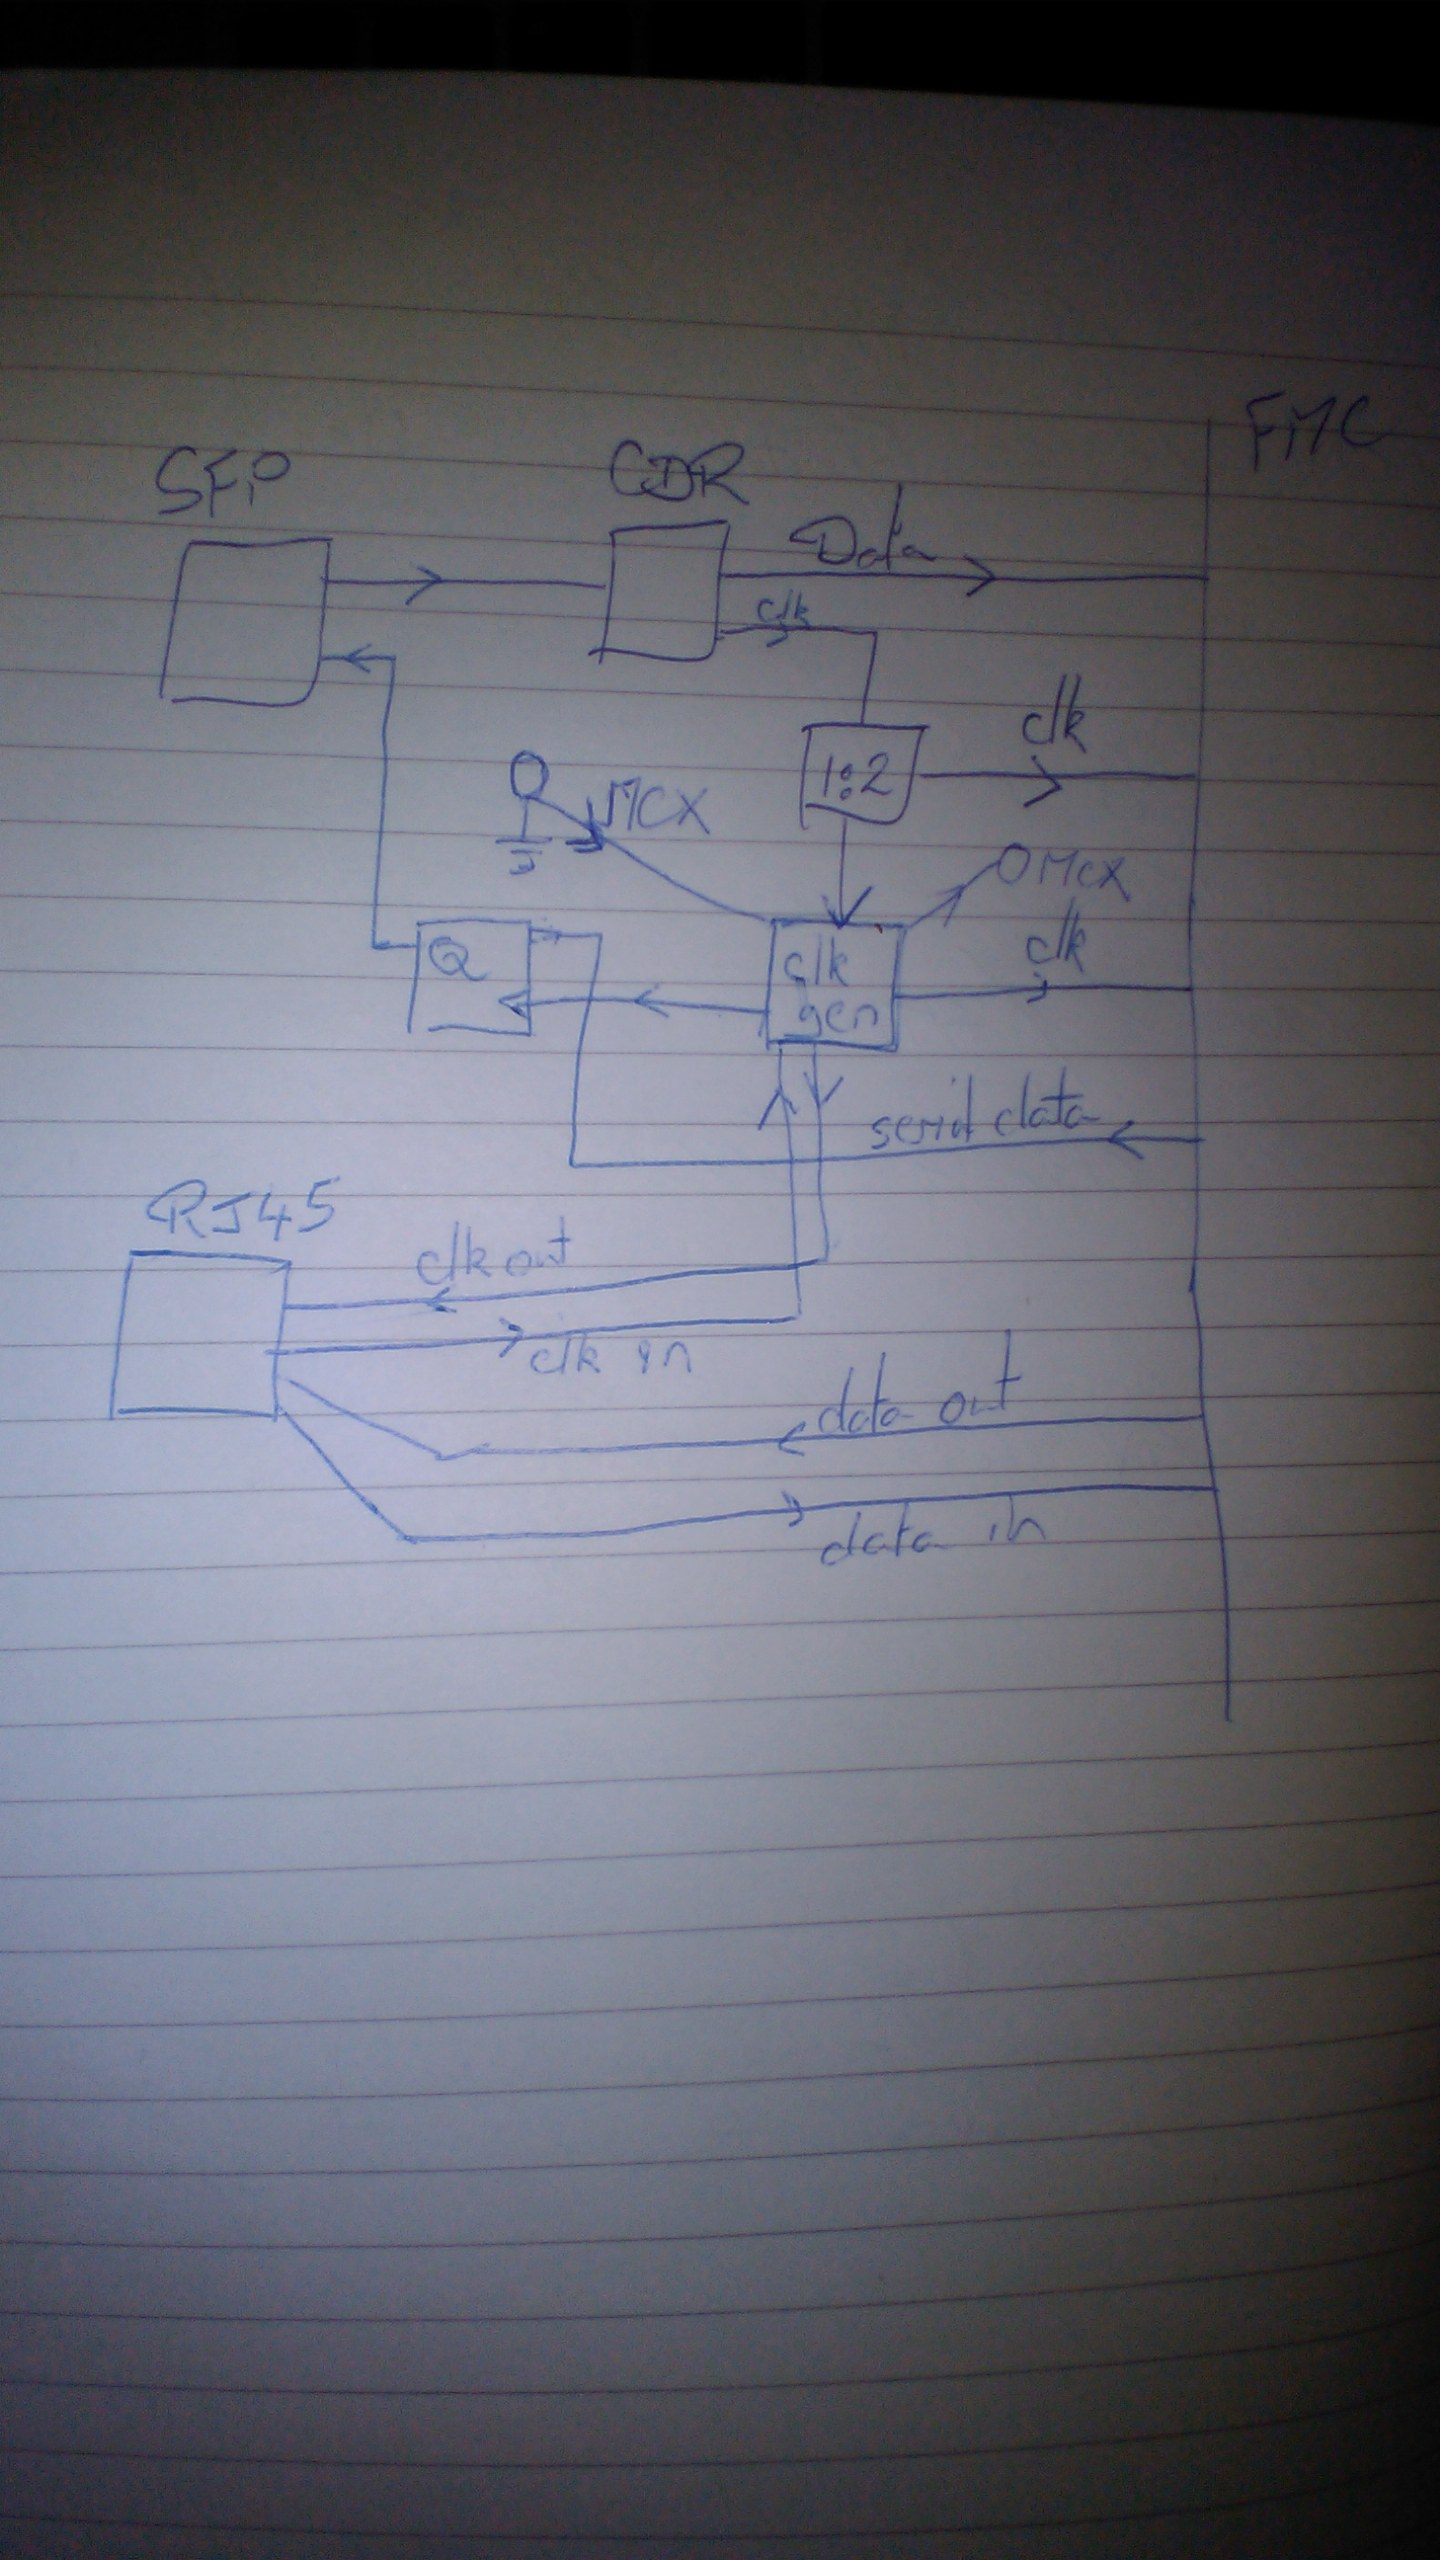 FMC
SFP
CDR
Data
clk
clk
1:2
MCX
MCX
Q
clk
gen
clk
serial data
RJ45
clk out
clk in
data out
data in